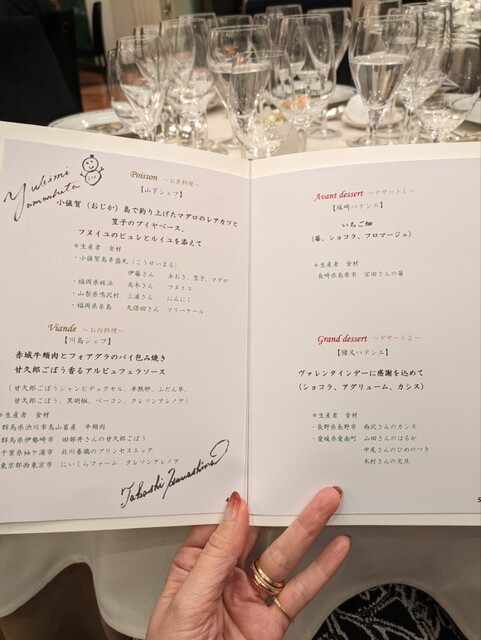 Yukimi
Yamashita
Poisson ～お魚料理～
【山下シェフ】
小値賀（おじか）島で釣り上げたマグロのレアカツと
笠子のブイヤベース、
フヌイユのピュレとルイユを添えて
＊生産者　食材
・小値賀島幸盛丸（こうせいまる）
伊藤さん　あおさ、笠子、マグロ
・福岡県　高木さん　フヌイユ
・山梨県鳴沢村　三浦さん　にんにく
・福岡県糸島　久保田さん　フリーケール
Viande ～お肉料理～
【川島シェフ】
赤城牛頬肉とフォアグラのパイ包み焼き
甘久郎ごぼう香るアルビュフェラソース
（甘久郎ごぼう、シャンピデュクセル、半熟卵、ふだん草、
甘久郎ごぼう、黒胡椒、ベーコン、クレソンアレノア）
＊生産者　食材
群馬県渋川市鳥山畜産　牛頬肉
群馬県伊勢崎市　田部井さんの甘久郎ごぼう
千葉県袖ケ浦市　北川養鶏のプリンセスエッグ
東京都西東京市　にいくらファーム　クレソンアレノア
Takashi Kawashima
4
Avant dessert ～デザート１～
【塚崎パテシエ】
いちご畑
（苺、ショコラ、フロマージュ）
＊生産者　食材
長崎県島原市　宮田さんの苺
Grand dessert ～デザート２～
【猪又パテシエ】
ヴァレンタインデーに感謝を込めて
（ショコラ、アグリューム、カシス）
＊生産者　食材
・長野県長野市　西沢さんのカシス
・愛媛県愛南町　山田さんのはるか
中尾さんのひめのつき
木村さんの文旦
5